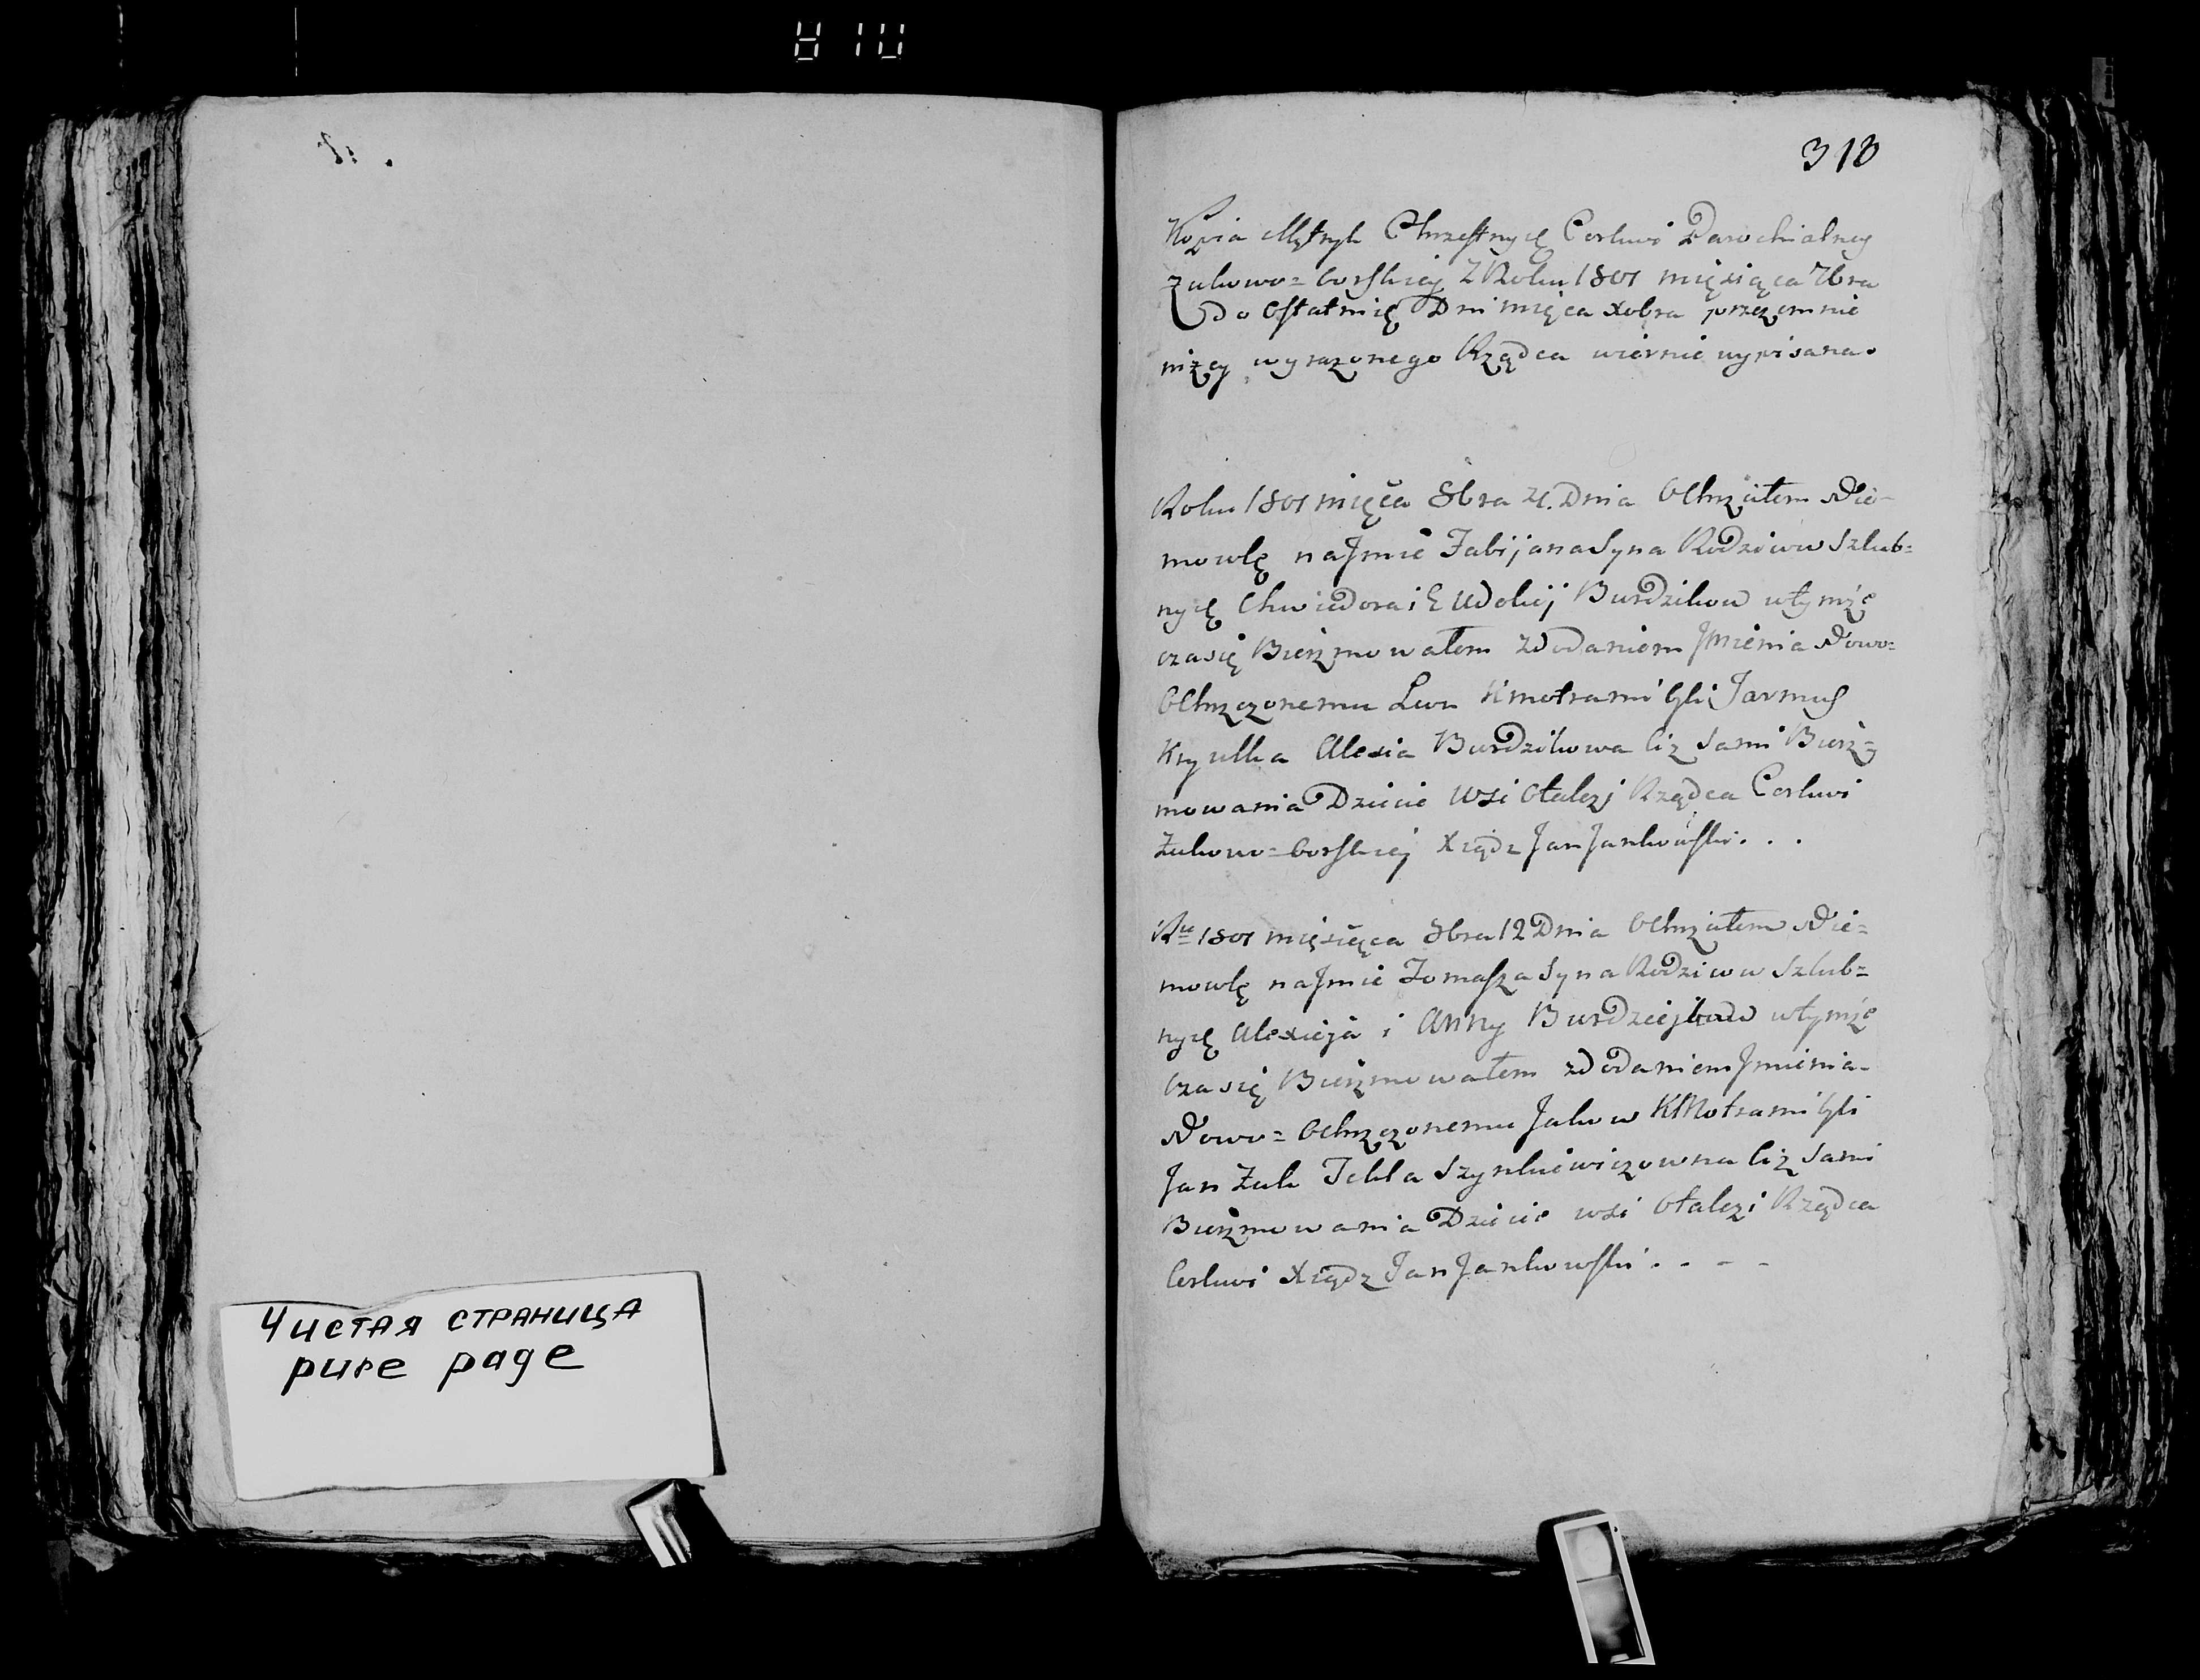 810
318
Kopia Metryk Chrzestnyię Cerkwi Parochialney
Żukowo=borskiej Z Roku 1801 mięsiąca 7bra
do Ostatnię Dni mięca xobra przezemnie
niżey wyrazonego Rządca wiernie wypisana.
Roku 1801 mięca 8bra 4. Dnia Ochrzciłem Nie-
mowlę na Jmie Fabijana Syna Rodziców Szlub=
nyię Chwiedora i Eudokij Burdzikow w tymże
czasię Bierzmowałem z Dodaniem Jmienia Nowo=
Ochrzczonemu Leon Kmotrami byli Jarmuś
Krywka Alesia Burdzikowa Ciż Sami Bierz=
mowania Dziecie wsi Otalezj Rządca Cerkwi
Żukowo=borskiej Xiądz Jan Jankowski . . .
Ru 1801 mięsięca 8bra 12 Dnia Ochrzciłem Nie=
mowlę na Jmie Tomasza Syna Rodziców Szlub=
nyię Alexieja i Anny Burdziejkow w tymże
Czasię Bierzmowałem z Dodaniem Jmienia
Nowo=Ochrzczonemu Jakow Kmotrami byli
Jan Żuk Tekla Szynkiewiczowna Ciż Sami
Bierzmowania Dziecie wsi Otalezi Rządca
Cerkwi Xiądz Jan Jankowski . - - -
Чистая страница
pure page